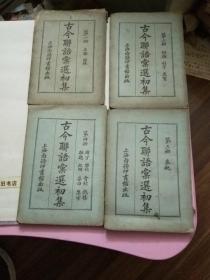 古今聯語彙選初集
第一冊
上海商務印書館出版
古今聯語彙選初集
第二冊
上海商務印書館出版
古今聯語彙選初集
第四冊
上海商務印書館出版
古今聯語彙選初集
第三冊
上海商務印書館出版
旧书店